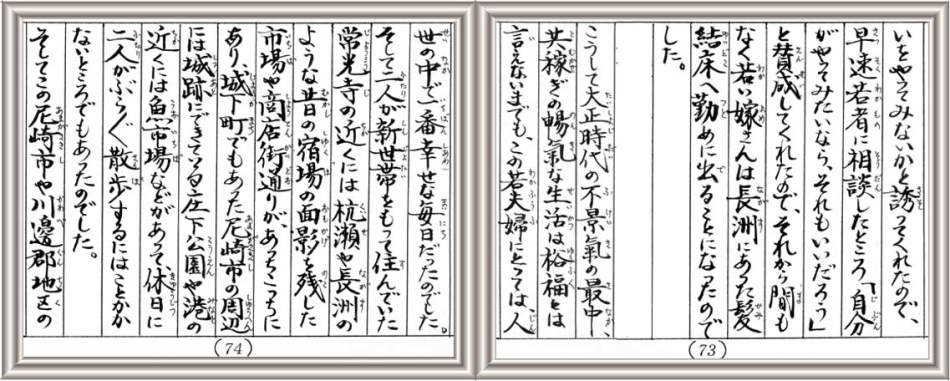 いをやってみないかと誘ってくれたので、
早速若者に相談したところ「自分
がやってみたいなら、それもいいだろう」
と賛成してくれたので、それから間も
なく若い嫁さんは長洲にあった髪
結床へ勤めに出ることになったので
した。
こうして大正時代の不景氣の最中、
共稼ぎの暢氣な生活は裕福とは
言えないまでも、この若夫婦にとっては、人
(73)
世の中で一番幸せな毎日だったのでした。
そして二人が新世帯をもって住んでいた
常光寺の近くには杭瀬や長洲の
ような昔の宿場の面影を残した
市場や商店街通りが、あっちこっちに
あり、城下町でもあった尼崎市の周辺
には城跡にできている庄下公園や港の
近くには魚市場などがあって、休日に
二人がぶらぶら散歩するにはことかか
ないところでもあったのでした。
そしてこの尼崎市や川邊郡地区の
(74)